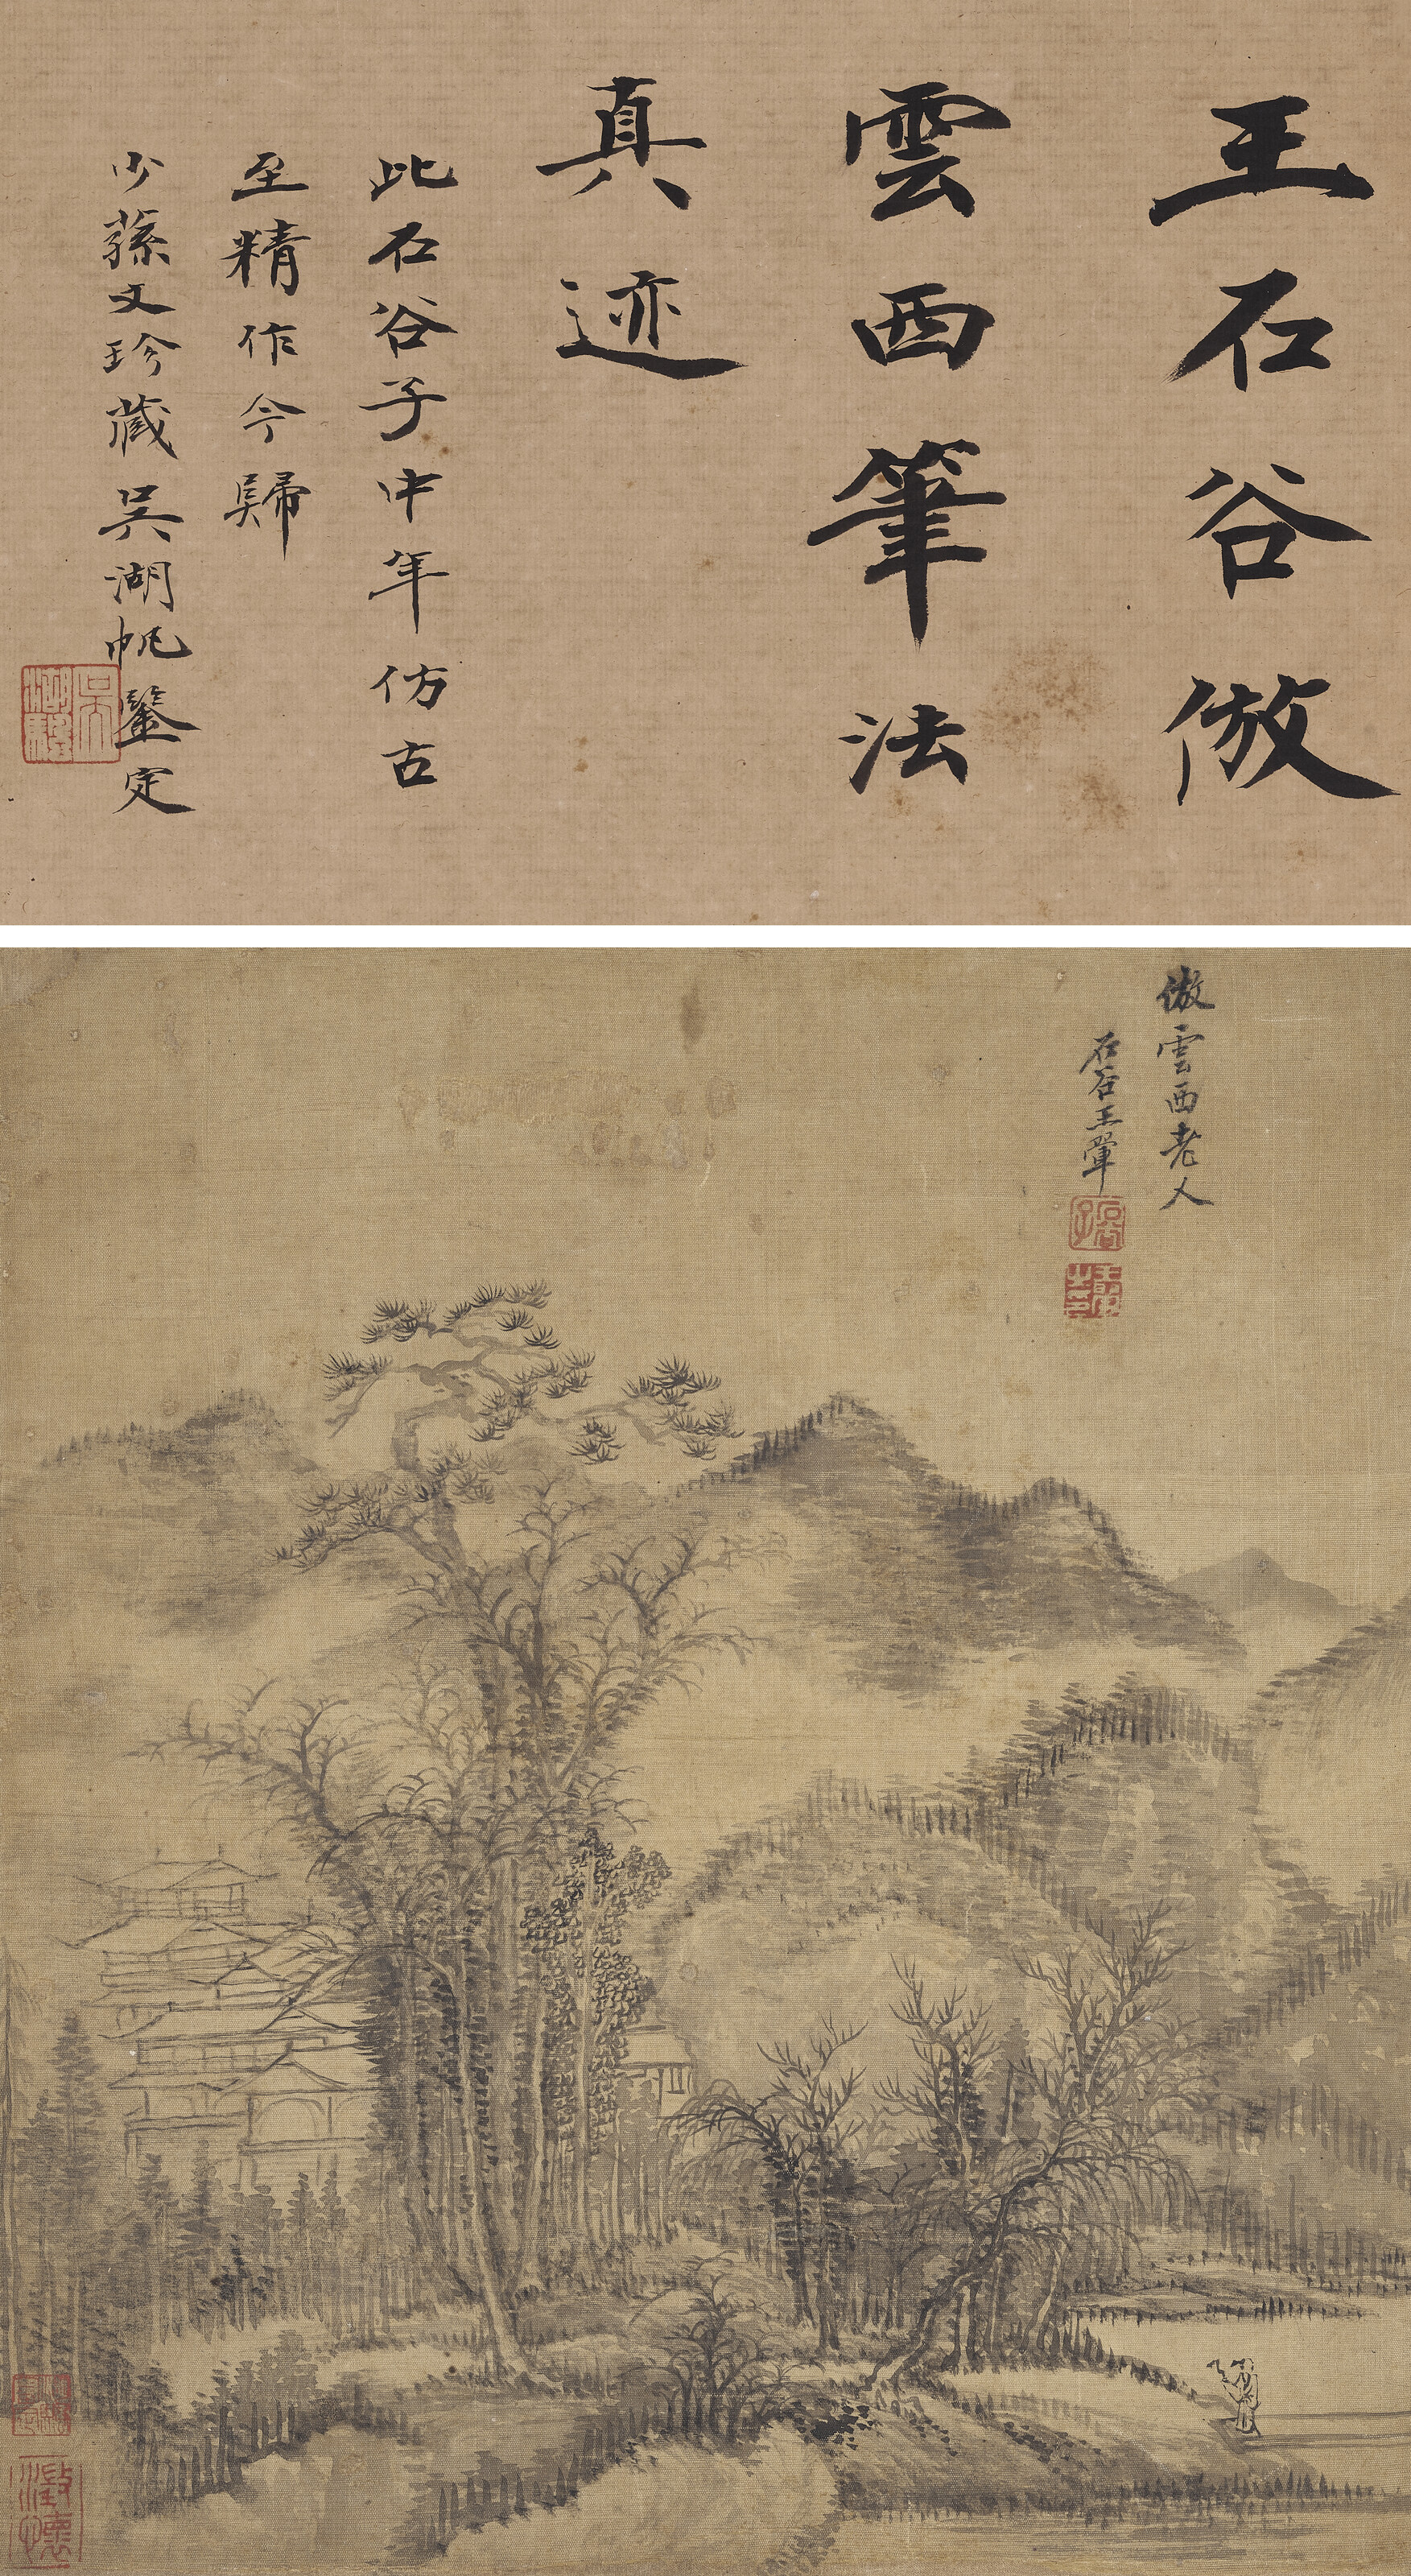 王石谷倣
雲西筆法
真迹
此石谷子中年仿古
至精作今歸
少蓀文珍藏吴湖帆鑒定
倣雲西老人
石谷王翬
澂懷